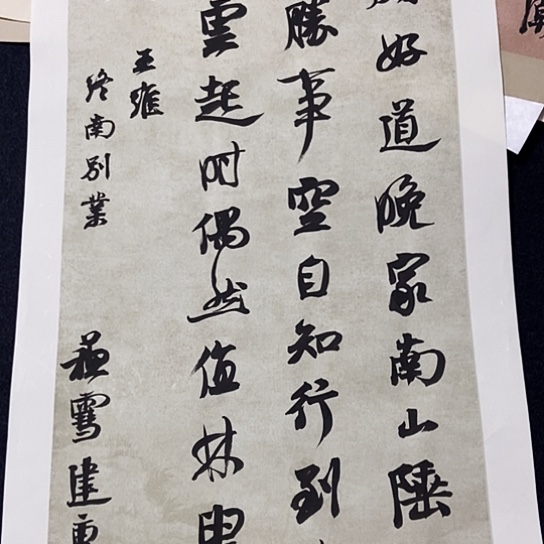 好道晚家南山陲
勝事空自知行到
雲起時偶然值林
王維
終南別業